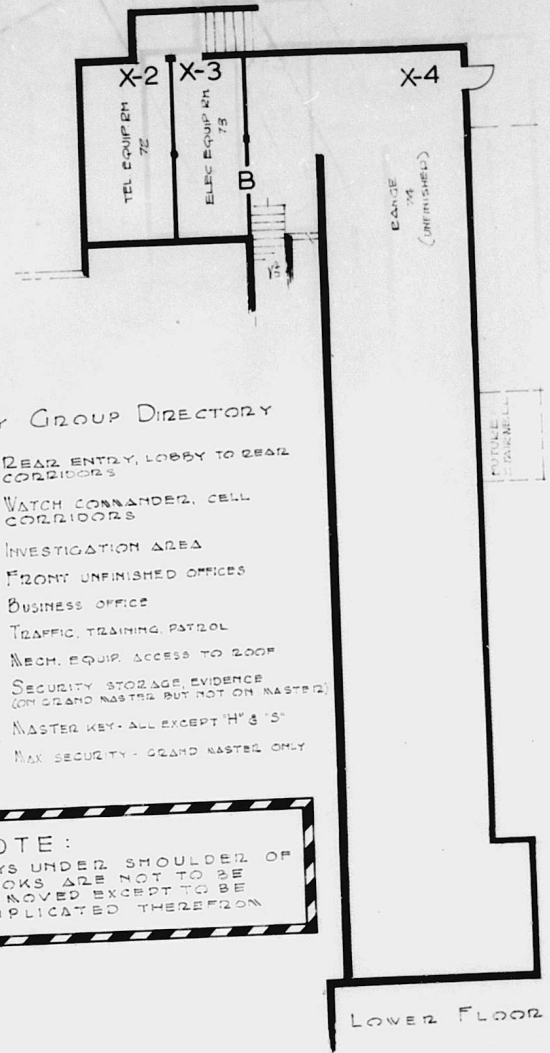 X-2
X-3
X-4
TEL EQUIP RM
72
ELEC EQUIP RM
73
B
RANGE
74
(UNFINISHED)
UP
FUTURE
STAIRWELL
Y GROUP DIRECTORY
REAR ENTRY, LOBBY TO REAR
CORRIDORS
WATCH COMMANDER, CELL
CORRIDORS
INVESTIGATION AREA
FRONT UNFINISHED OFFICES
BUSINESS OFFICE
TRAFFIC, TRAINING, PATROL
MECH. EQUIP. ACCESS TO ROOF
SECURITY STORAGE, EVIDENCE
(ON GRAND MASTER BUT NOT ON MASTER)
MASTER KEY - ALL EXCEPT "H" & "S"
MAX SECURITY - GRAND MASTER ONLY
OTE:
YS UNDER SHOULDER OF
OOKS ARE NOT TO BE
MOVED EXCEPT TO BE
PLICATED THEREFROM
LOWER FLOOR